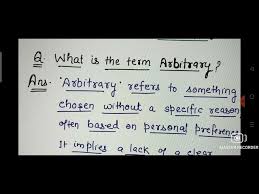 Q. What is the term Arbitrary?
Ans. "Arbitrary" refers to something
chosen without a specific reason
often based on personal preference
It implies a lack of a clear